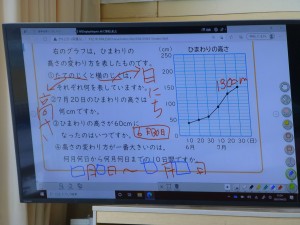 右のグラフは、ひまわりの
高さの変わり方を表したものです。
①たてのじくと横のじくは、
それぞれ何を表していますか。
②7月20日のひまわりの高さは
何cmですか。
③ひまわりの高さが60cmに
なったのはいつですか。
6月30日
④高さの変わり方が一番大きいのは、
何月何日から何月何日までの10日間ですか。
月 日 〜 月 日
日にち
(cm) ひまわりの高さ
250
200
150
100
50
0
10 20 30 10 20 30 (日)
6月 7月
130cm